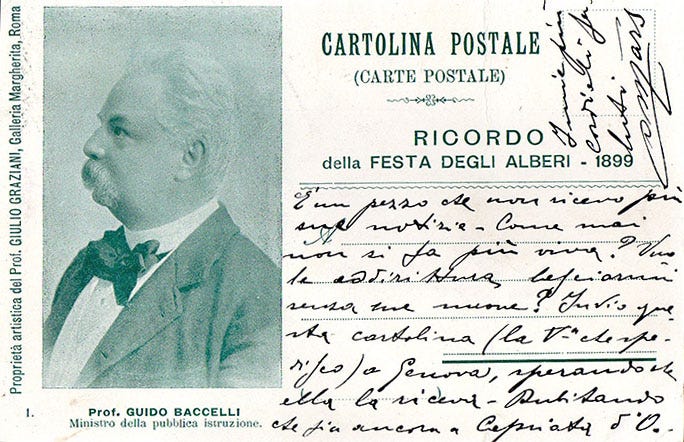 Proprietà artistica del Prof. GIULIO GRAZIANI, Galleria Margherita, Roma
CARTOLINA POSTALE
(CARTE POSTALE)
RICORDO
della FESTA DEGLI ALBERI - 1899
I miei più
cordiali sa
luti
È un pezzo che non ricevo più
sue notizie - Come mai
non si fa più viva? Vuo
le addirittura lasciarmi
senza sue nuove? Invio que
sta cartolina (la Vª che spe-
disco) a Genova, sperando che
ella la riceva - Dubitando
che sia ancora a Capriata d'O.-
1.
Prof. GUIDO BACCELLI
Ministro della pubblica istruzione.